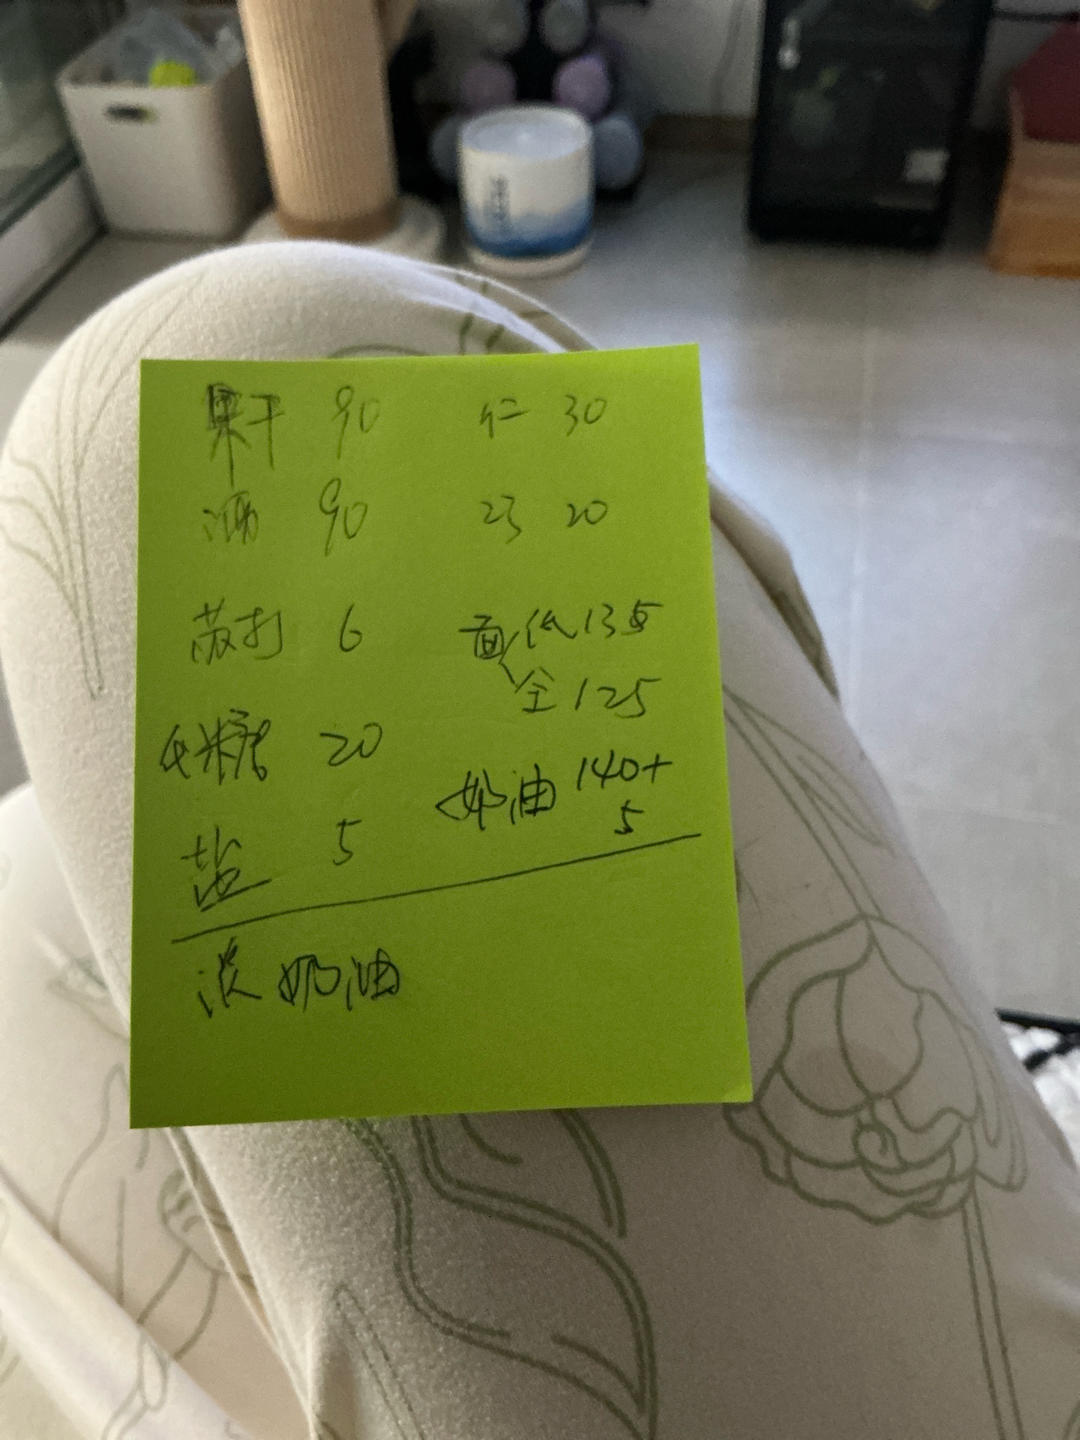 果干 90
仁 30
酒 90
巧 20
苏打 6
面 低 135
全 125
糖 20
奶油 140+
5
盐 5
淡奶油